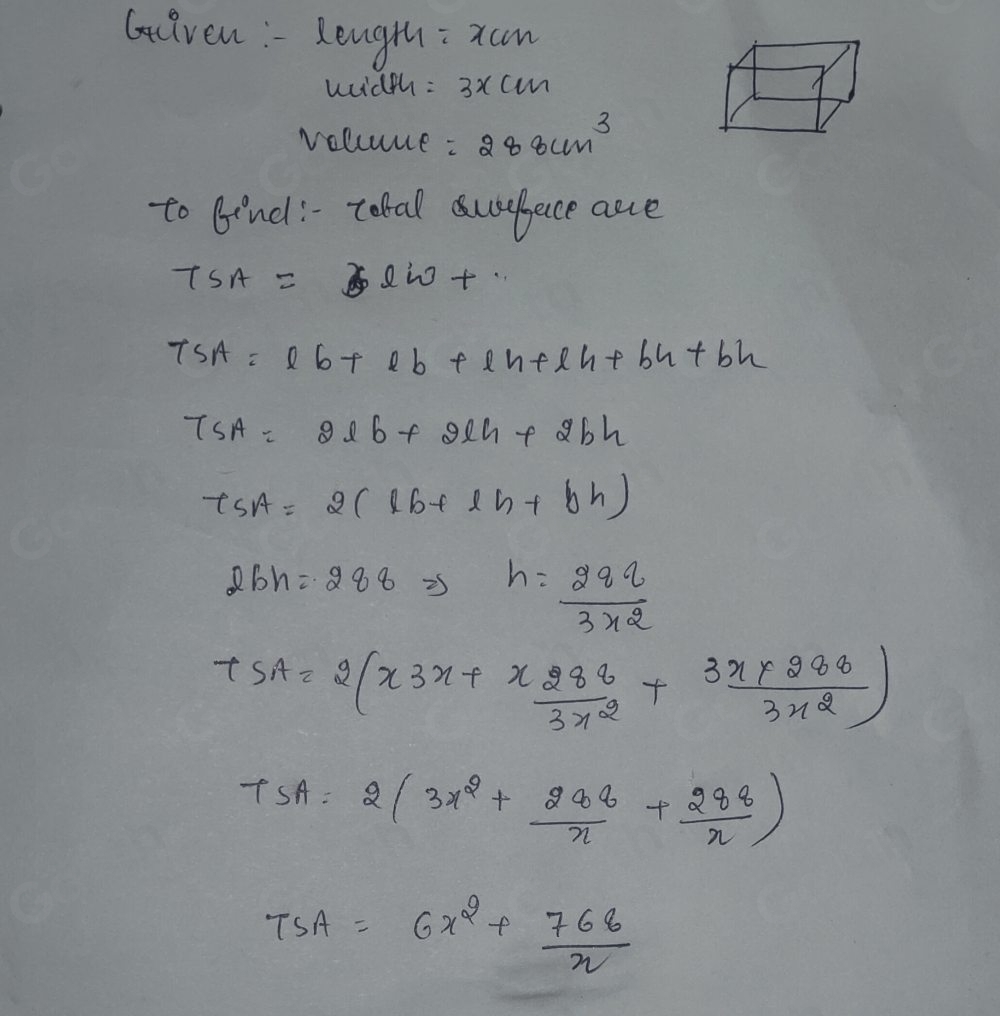 Given :- length = x cm
width = 3x cm
Volume = 288cm³
To find :- total surface are
TSA = lw + ..
TSA = lb + lb + lh + lh + bh + bh
TSA = 2lb + 2lh + 2bh
TSA = 2( lb + lh + bh )
lbh = 288 ⇒ h = 288/3x²
TSA = 2(x3x + x 288/3x² + 3x × 288/3x²)
TSA = 2( 3x² + 288/x + 288/x )
TSA = 6x² + 768/x